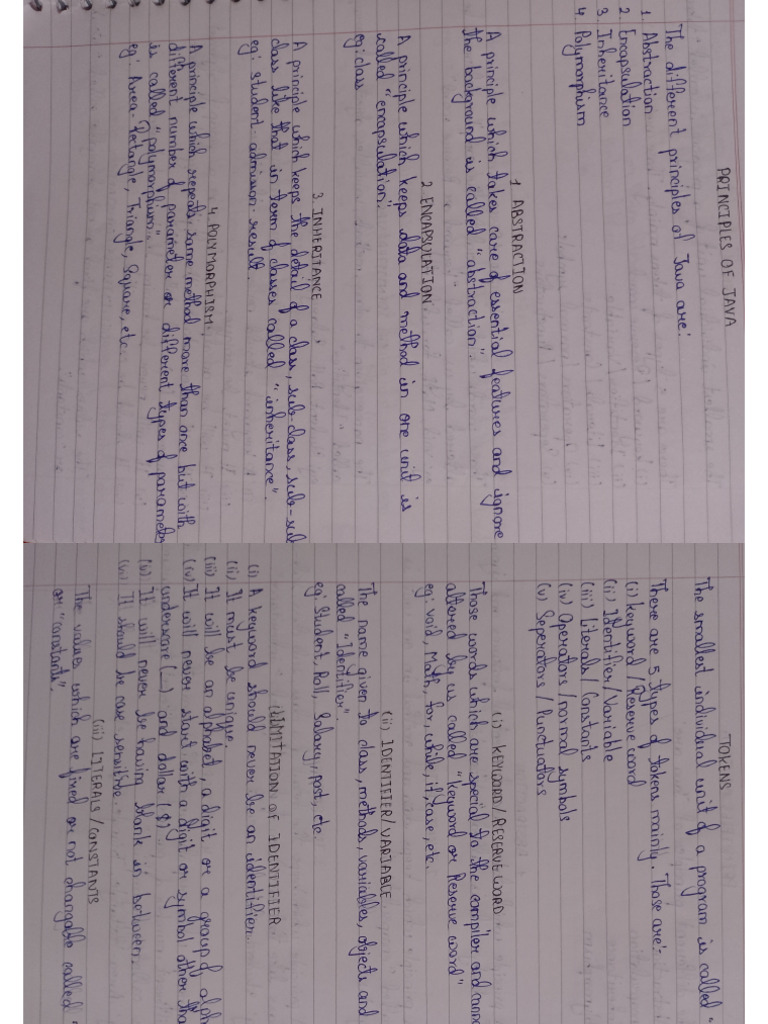 PRINCIPLES OF JAVA
The different principles of Java are:
1. Abstraction
2 Encapsulation
3 Inheritance
4 Polymorphism
1 ABSTRACTION
A principle which takes care of essential features and ignore
the background is called "abstraction."
2 ENCAPSULATION
A principle which keeps data and method in one unit is
called "encapsulation."
eg: class
3. INHERITANCE
A principle which keeps the detail of a class, sub-class, sub-sub
class like that in term of classes called "inheritance".
eg: student admission result.
4. POLYMORPHISM
A principle which repeats same method more than once but with
different number of parameter or different types of parameter
is called "polymorphism".
eg: Area - Rectangle, Triangle, Square, etc.
TOKENS
The smallest individual unit of a program is called "
There are 5 types of tokens mainly. Those are:-
(i) keyword / Reserve word
(ii) Identifier / Variable
(iii) Literals / Constants
(iv) Operators / normal symbols
(v) Seperators / Punctuators
(i) KEYWORD / RESERVE WORD
Those words which are special to the compiler and
altered by us called "keyword or Reserve word"
eg: void, Math, for, while, if, case, etc.
(ii) IDENTIFIER / VARIABLE
The name given to class, methods, variables, objects and
called "Identifier"
eg: Student, Roll, Salary, post, etc.
LIMITATION OF IDENTIFIER
(i) A keyword should never be an identifier.
(ii) It must be unique.
(iii) It will be an alphabet, a digit or a group of alph
(iv) It will never start with a digit or symbol other tha
underscore (_) and dollar ($)
(v) It will never be having blank in between.
(vi) It should be case sensitive.
(iii) LITERALS / CONSTANTS
The values which are fixed or not changable called "
or "constants".